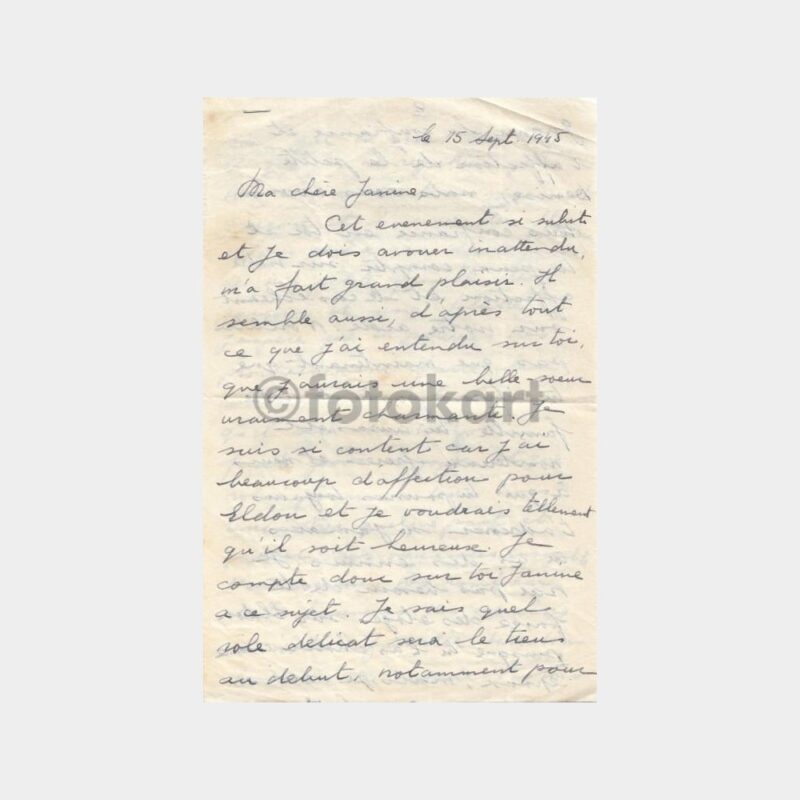 le 15 Sept. 1945
Ma chère Janine
Cet evenement si subit
et je dois avouer inattendu,
m'a fait grand plaisir. Il
semble aussi, d'après tout
ce que j'ai entendu sur toi,
que j'aurais une belle soeur
vraiment charmante. Je
suis si content car j'ai
beaucoup d'affection pour
Eldon et je voudrais tellement
qu'il soit heureuse. Je
compte donc sur toi Janine
a ce sujet. Je sais quel
role delicat sera le tiens
au debut, notamment pour
©fotokart